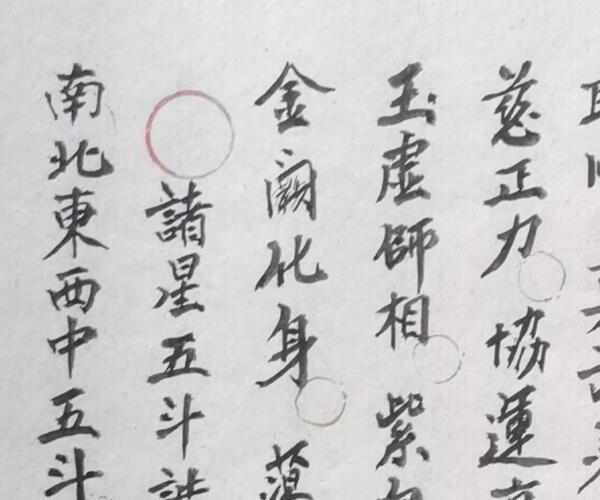 慈正力 協運
玉虛師相 紫
金闕化身 蕩
諸星五斗
南北東西中五斗